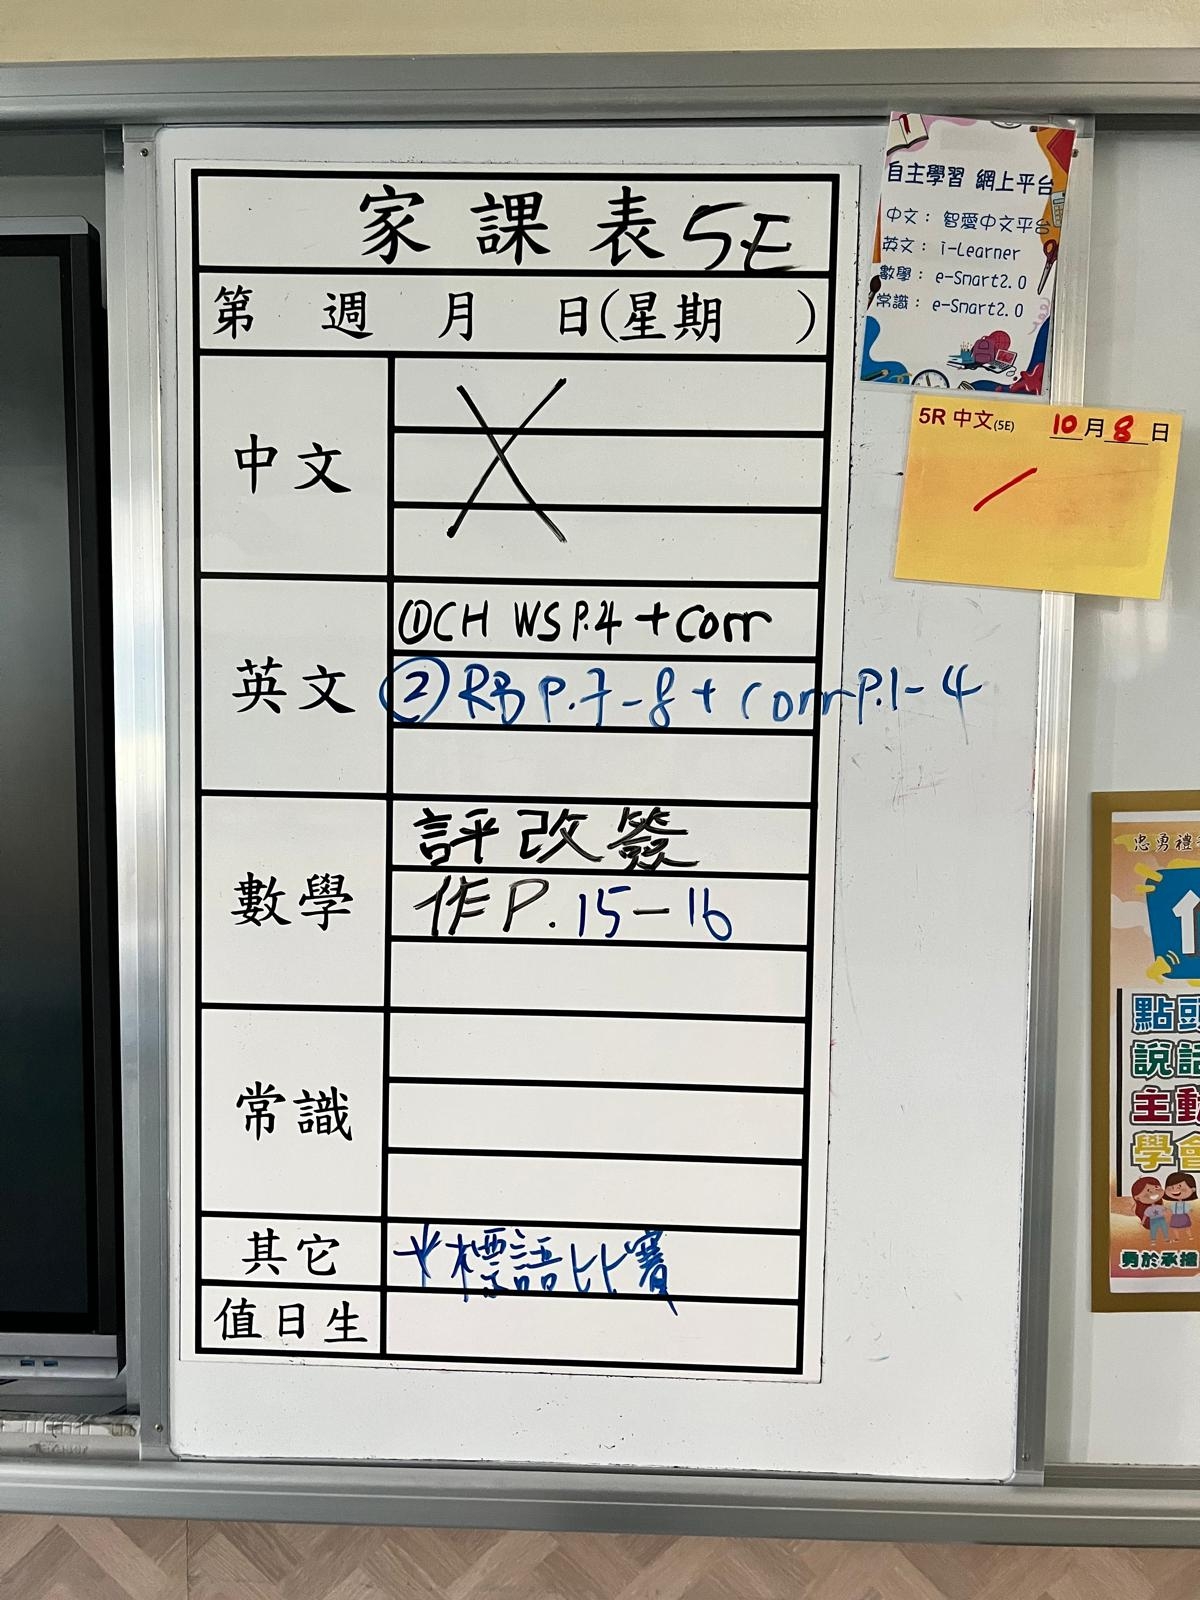 家課表 5E
第 週 月 日(星期 )
中文
英文
①CH WS P.4 + Corr
② RB P.7-8 + Corr P.1-4
數學
評改簽
作 P. 15-16
常識
其它
*標語比賽
值日生
自主學習 網上平台
中文： 智愛中文平台
英文： i-Learner
數學： e-Smart2.0
常識： e-Smart2.0
5R 中文(5E) 10月8日
忠勇禮
點頭
說話
主動
學會
勇於承擔